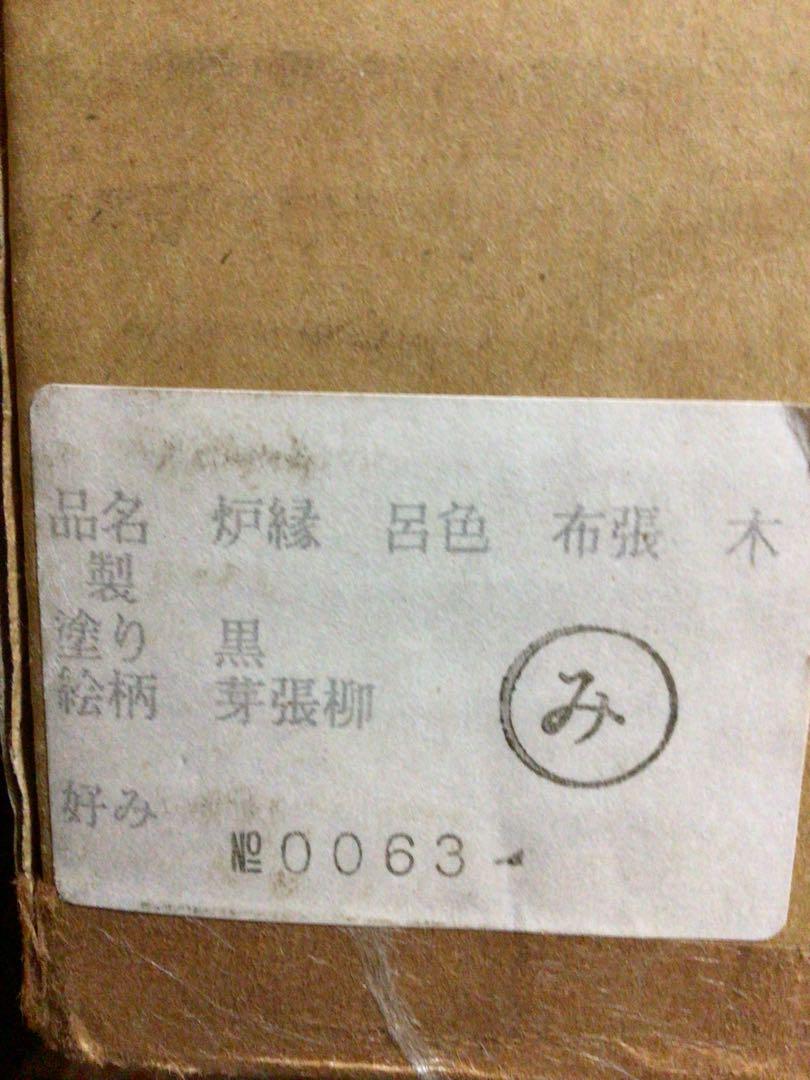 品名　炉縁　呂色　布張　木
製
塗り　黒
絵柄　芽張柳
み
好み
№0063